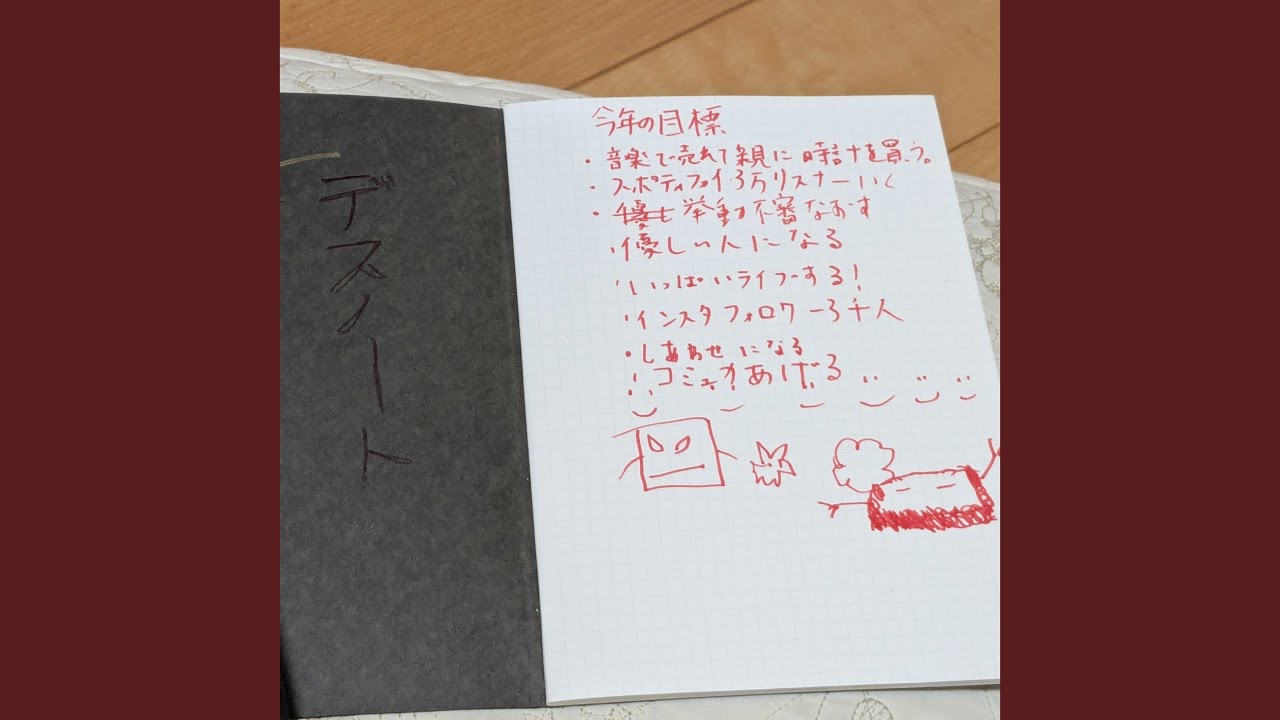 デスノート
今年の目標
・音楽で売れて親に時計を買う。
・スポティファイ3万リスナーいく
・優し 挙動不審なおす
・優しい人になる
・いっぱいライブする!
・インスタフォロワー3千人
・しあわせになる
・コミュ力あげる